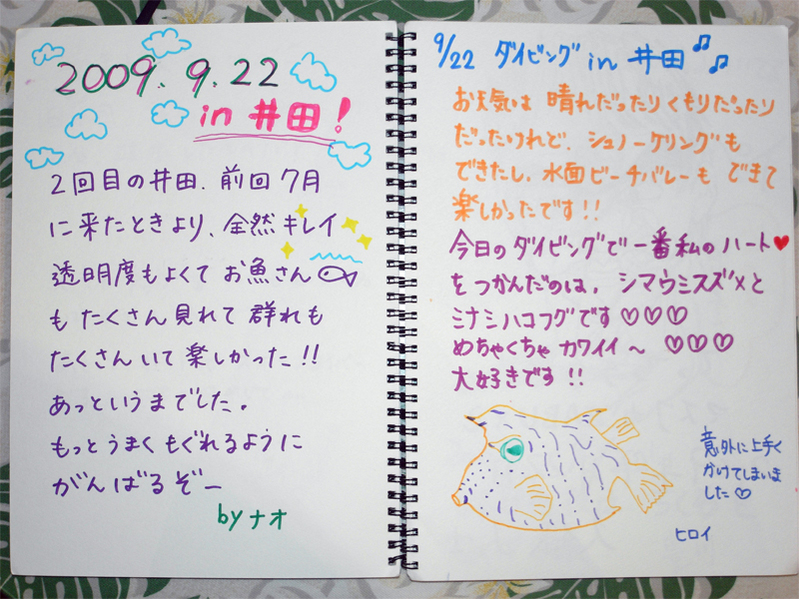 2009. 9. 22
in 井田!
2回目の井田. 前回7月
に来たときより、全然キレイ
透明度もよくてお魚さん
もたくさん見れて群れも
たくさんいて楽しかった!!
あっというまでした。
もっとうまくもぐれるように
がんばるぞー
by ナオ
9/22 ダイビング in 井田♫♫
お天気は 晴れだったりくもりだったり
だったけれど、シュノーケリングも
できたし、水面ビーチバレーも できて
楽しかったです!!
今日のダイビングで一番私のハート♥
をつかんだのは、シマウミスズメと
ミナミハコフグです♡♡♡
めちゃくちゃ カワイイ〜 ♡♡♡
大好きです!!
意外に上手く
かけてしまいま
した♡
ヒロイ